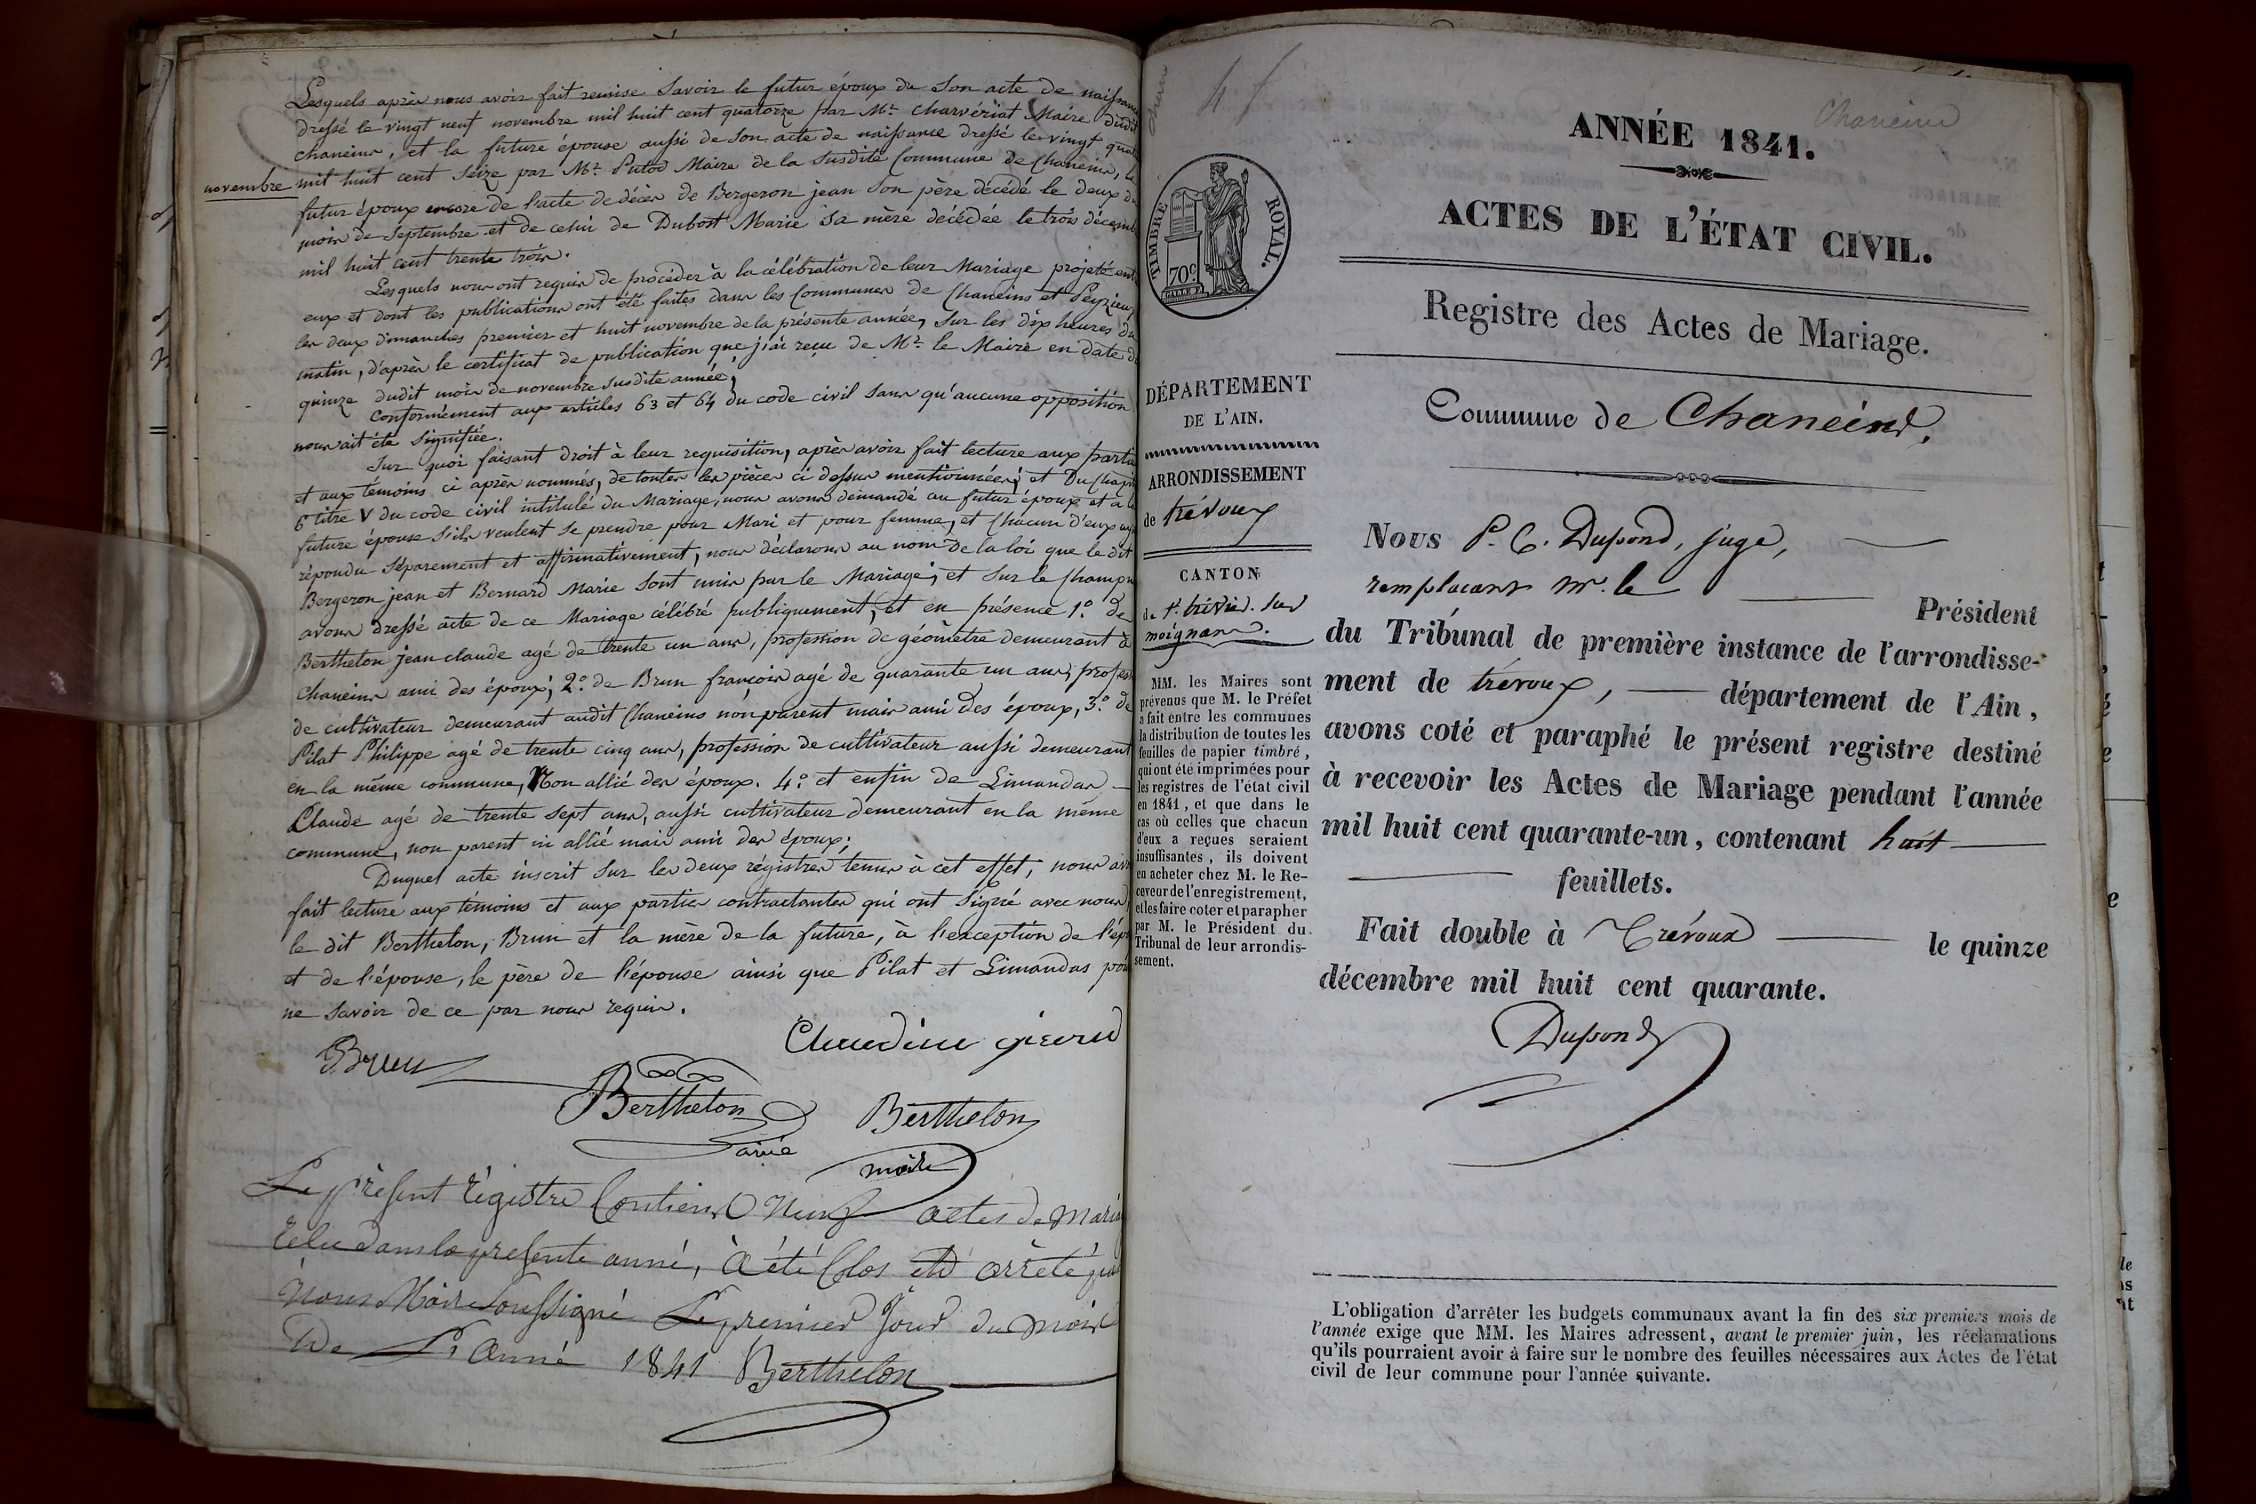 Lesquels après nous avoir fait remise Savoir le futur époux du Son acte de naissance
dressé le vingt neuf novembre mil huit cent quatorze par Mr. Charvériat Maire dudit
chaneins, et la future épouse aussi de Son acte de naissance dressé le vingt quatre
novembre mil huit cent Seize par Mr. Putod Maire de la Susdite Commune de Chaneins, le
futur époux encore de l'acte de décès de Bergeron jean Son père décédé le deux du
mois de Septembre et de celui de Dubost Marie Sa mère décédée le trois décembre
mil huit cent trente trois.
Lesquels nous ont requis de procéder à la célébration de leur Mariage projeté entre
eux et dont les publications ont été faites dans les Communes de Chaneins et Peyzieux
les deux dimanches premier et huit novembre de la présente année, Sur les dix heures du
matin, d'après le certificat de publication que j'ai reçu de Mr. le Maire en date du
quinze dudit mois de novembre susdite année,
Conformément aux articles 63 et 64 du code civil Sans qu'aucune opposition
nous ait été Signifiée.
Sur quoi faisant droit à leur requisition, après avoir fait lecture aux parties
et aux témoins ci après nommés, de toutes les pièces ci dessus mentionnées; et Du Chapitre
6 titre V du code civil intitulé du Mariage, nous avons demandé au futur époux et à la
future épouse S'ils veulent Se prendre pour Mari et pour femme, et Chacun d'eux ayant
répondu Séparement et affirmativement, nous déclarons au nom de la loi que le dit
Bergeron jean et Bernard Marie Sont unis par le Mariage; et Sur le Champ nous
avons dressé acte de ce Mariage célébré publiquement, et en présence 1.° de
Berthelon jean claude agé de trente un ans, profession de géomètre demeurant à
Chaneins ami des époux; 2.° de Brun françois agé de quarante un ans, profession
de cultivateur demeurant audit Chaneins non parent mais ami Des époux, 3.° de
Pilat Philippe agé de trente cinq ans, profession de cultivateur aussi demeurant
en la même commune, Non allié des époux. 4.° et enfin de Limandas
Claude agé de trente Sept ans, aussi cultivateur demeurant en la même
commune, non parent ni allié mais ami des époux;
Duquel acte inscrit Sur les deux régistres tenus à cet effet, nous avons
fait lecture aux témoins et aux parties contractantes qui ont Signé avec nous
le dit Berthelon, Brun et la mère de la future, à l'exception de l'époux
et de l'épouse, le père de l'épouse ainsi que Pilat et Limandas pour
ne Savoir de ce par nous requis.
Claudine girard
Brun
Berthelon Berthelon
maire
Le présent régistre Contient Neuf actes de Mariage
dans la presente anné, à été Clos et arrêté par
Nous Maire Soussigné Le premier Jour du mois
De L'Anné 1841 Berthelon
4 f
Chaneins
TIMBRE ROYAL.
70c
ANNÉE 1841.
ACTES DE L'ÉTAT CIVIL.
Registre des Actes de Mariage.
DÉPARTEMENT
DE L'AIN.
ARRONDISSEMENT
de trévoux
CANTON
de St. trivier. Sur
moignans.
MM. les Maires sont
prévenus que M. le Préfet
a fait entre les communes
la distribution de toutes les
feuilles de papier timbré,
qui ont été imprimées pour
les registres de l'état civil
en 1841, et que dans le
cas où celles que chacun
d'eux a reçues seraient
insuffisantes, ils doivent
en acheter chez M. le Re-
ceveur de l'enregistrement,
et les faire coter et parapher
par M. le Président du
Tribunal de leur arrondis-
sement.
Commune de Chaneins.
Nous P. C. Dupond, juge,
remplacant Mr. le Président
du Tribunal de première instance de l'arrondisse-
ment de trévoux, département de l'Ain,
avons coté et paraphé le présent registre destiné
à recevoir les Actes de Mariage pendant l'année
mil huit cent quarante-un, contenant huit
feuillets.
Fait double à Trévoux le quinze
décembre mil huit cent quarante.
Dupond
L'obligation d'arrêter les budgets communaux avant la fin des six premiers mois de
l'année exige que MM. les Maires adressent, avant le premier juin, les réclamations
qu'ils pourraient avoir à faire sur le nombre des feuilles nécessaires aux Actes de l'état
civil de leur commune pour l'année suivante.